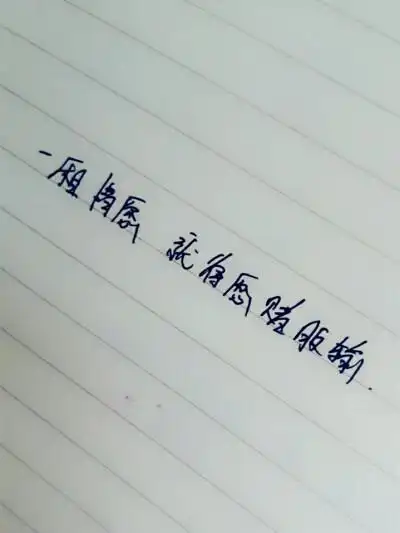 一厢情愿 就得愿赌服输.